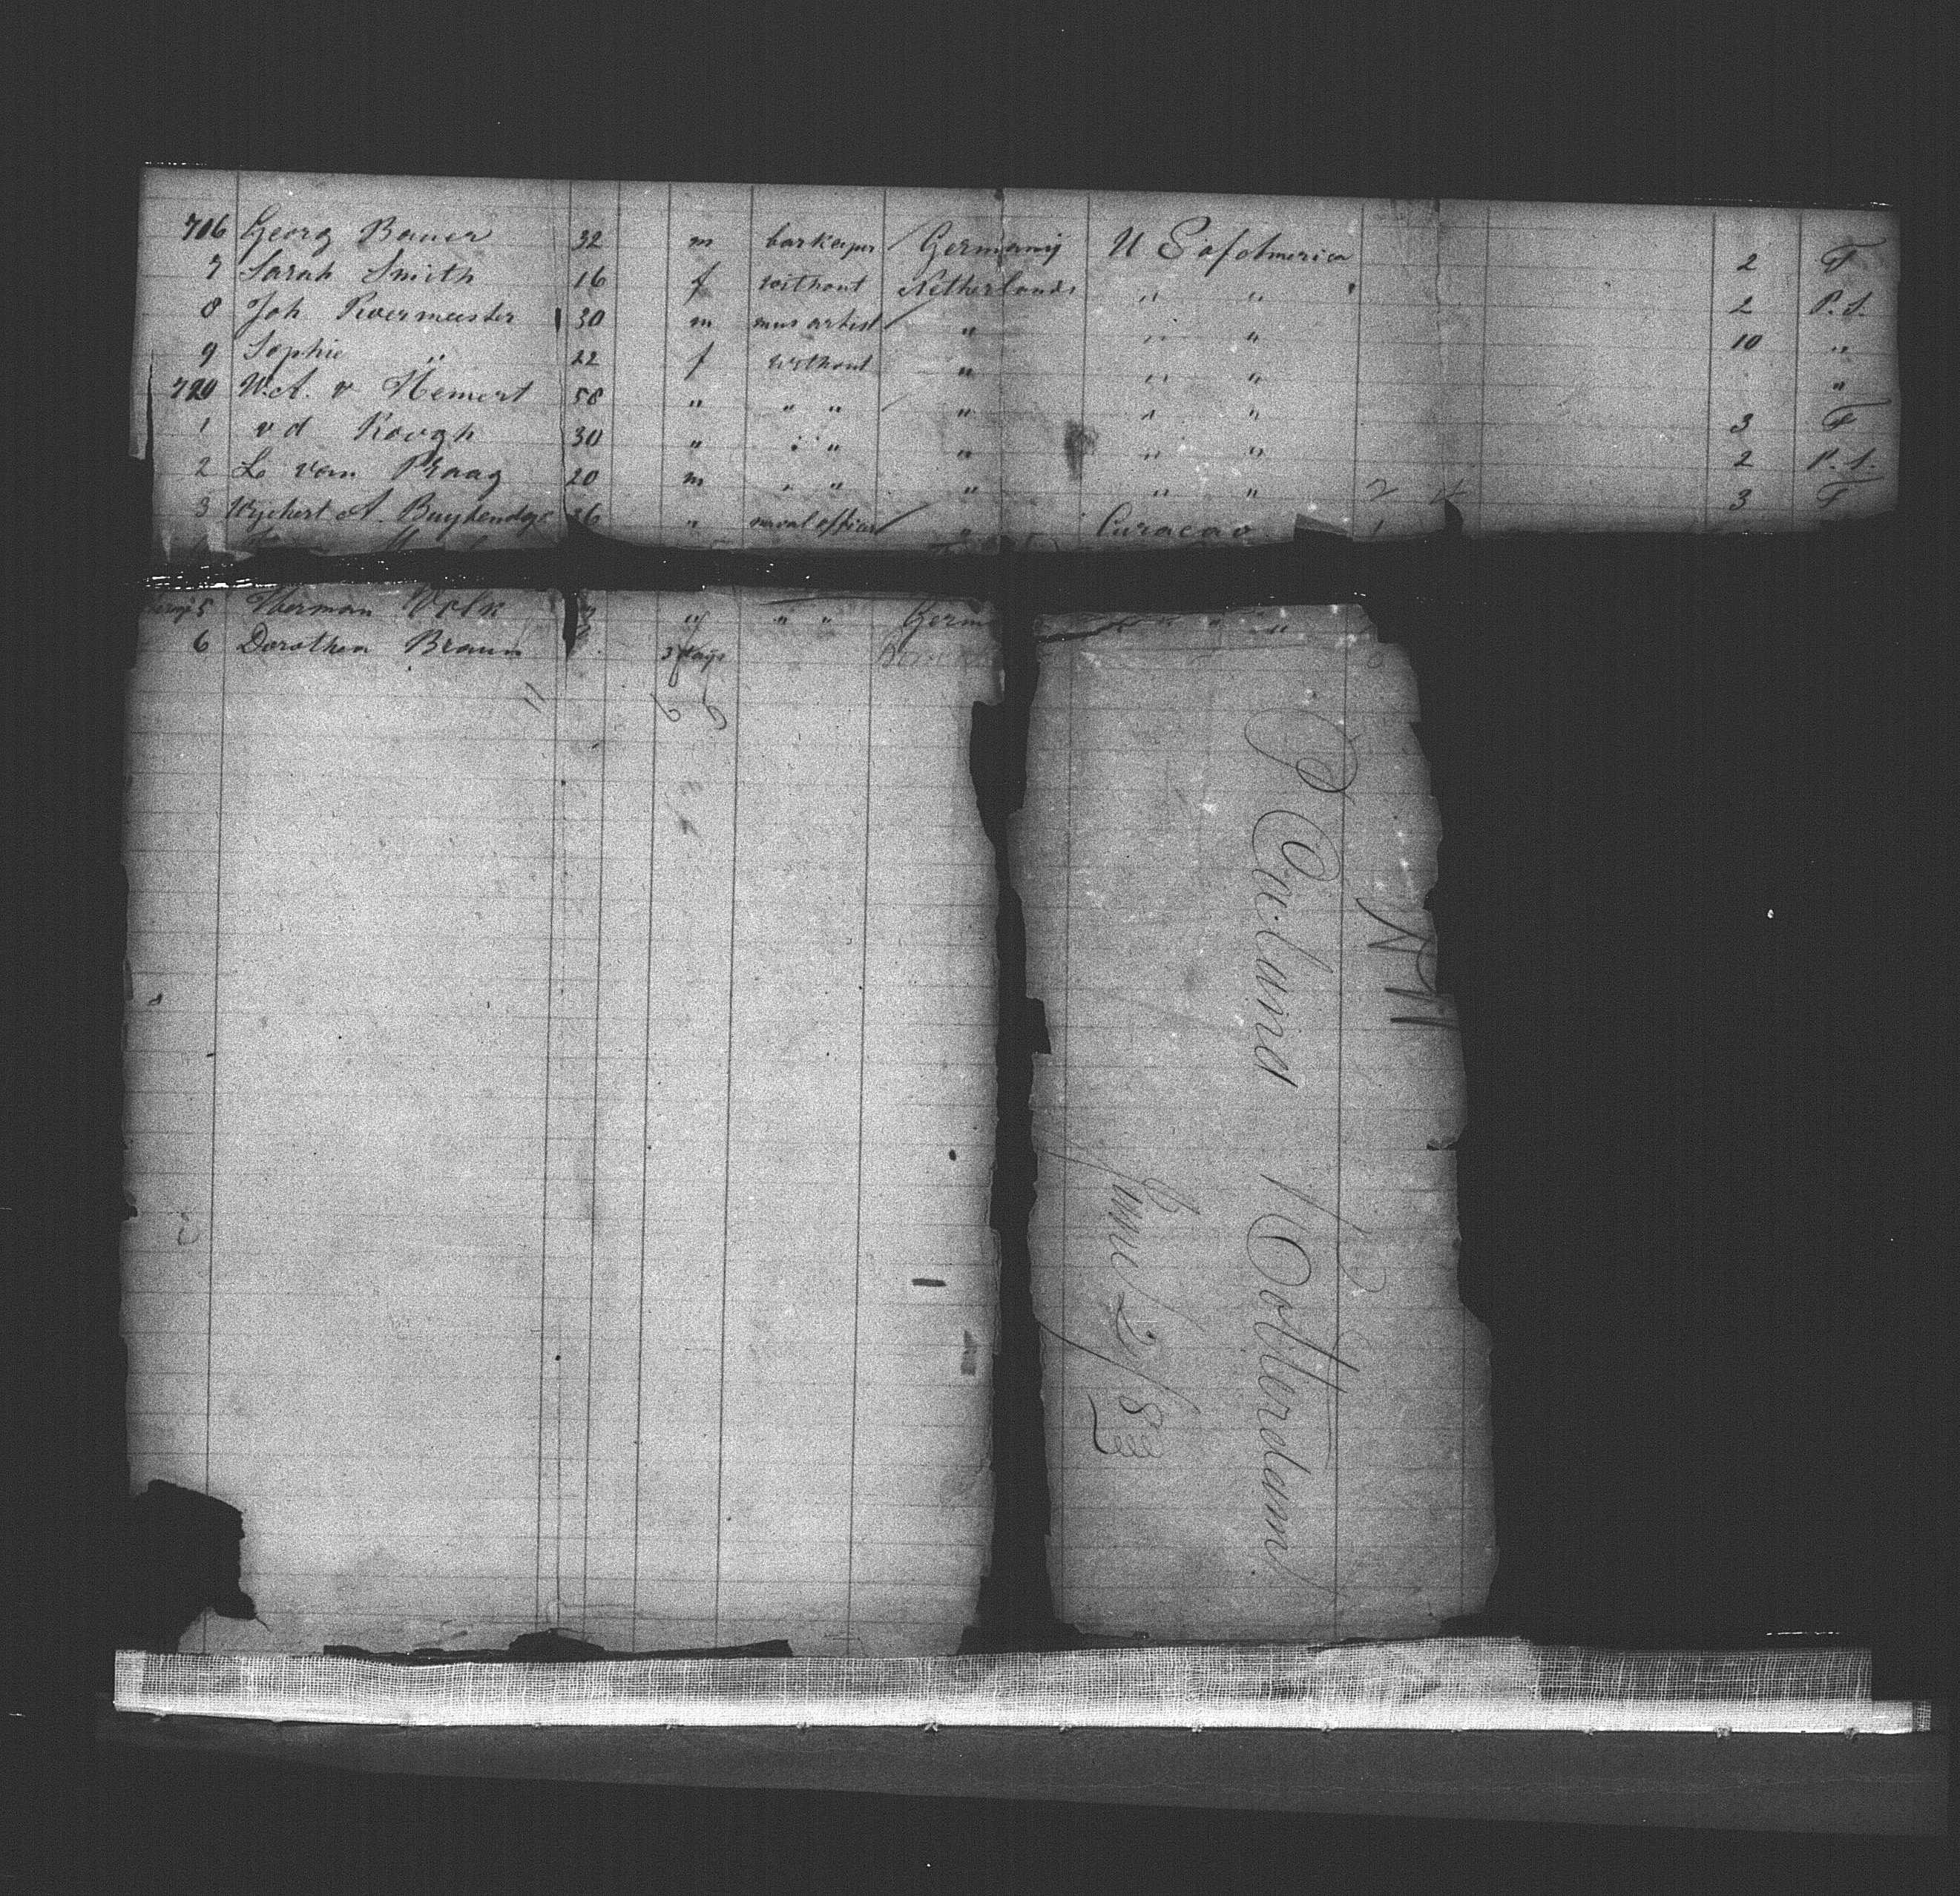 716 Georg Bauer 32 m barkeeper Germany U S of America 2 F
7 Sarah Smith 16 f without Netherlands " " 2 P.S.
8 Joh Roermeester 30 m mus artist " " " 10 "
9 Sophie " 22 f without " " " "
720 W.A. v Hemert 58 " " " " " " 3 F
1 v d Roogh 30 " " " " " " 2 P.S.
2 L van Praag 20 m " " " " " 3 F
3 Wychert A. Buytendyc 36 " naval officer " Curacao
5 Herman Volk " " " Germ
6 Dorothea Braun 3 days
P Caland
Rotterdam
June 2/83